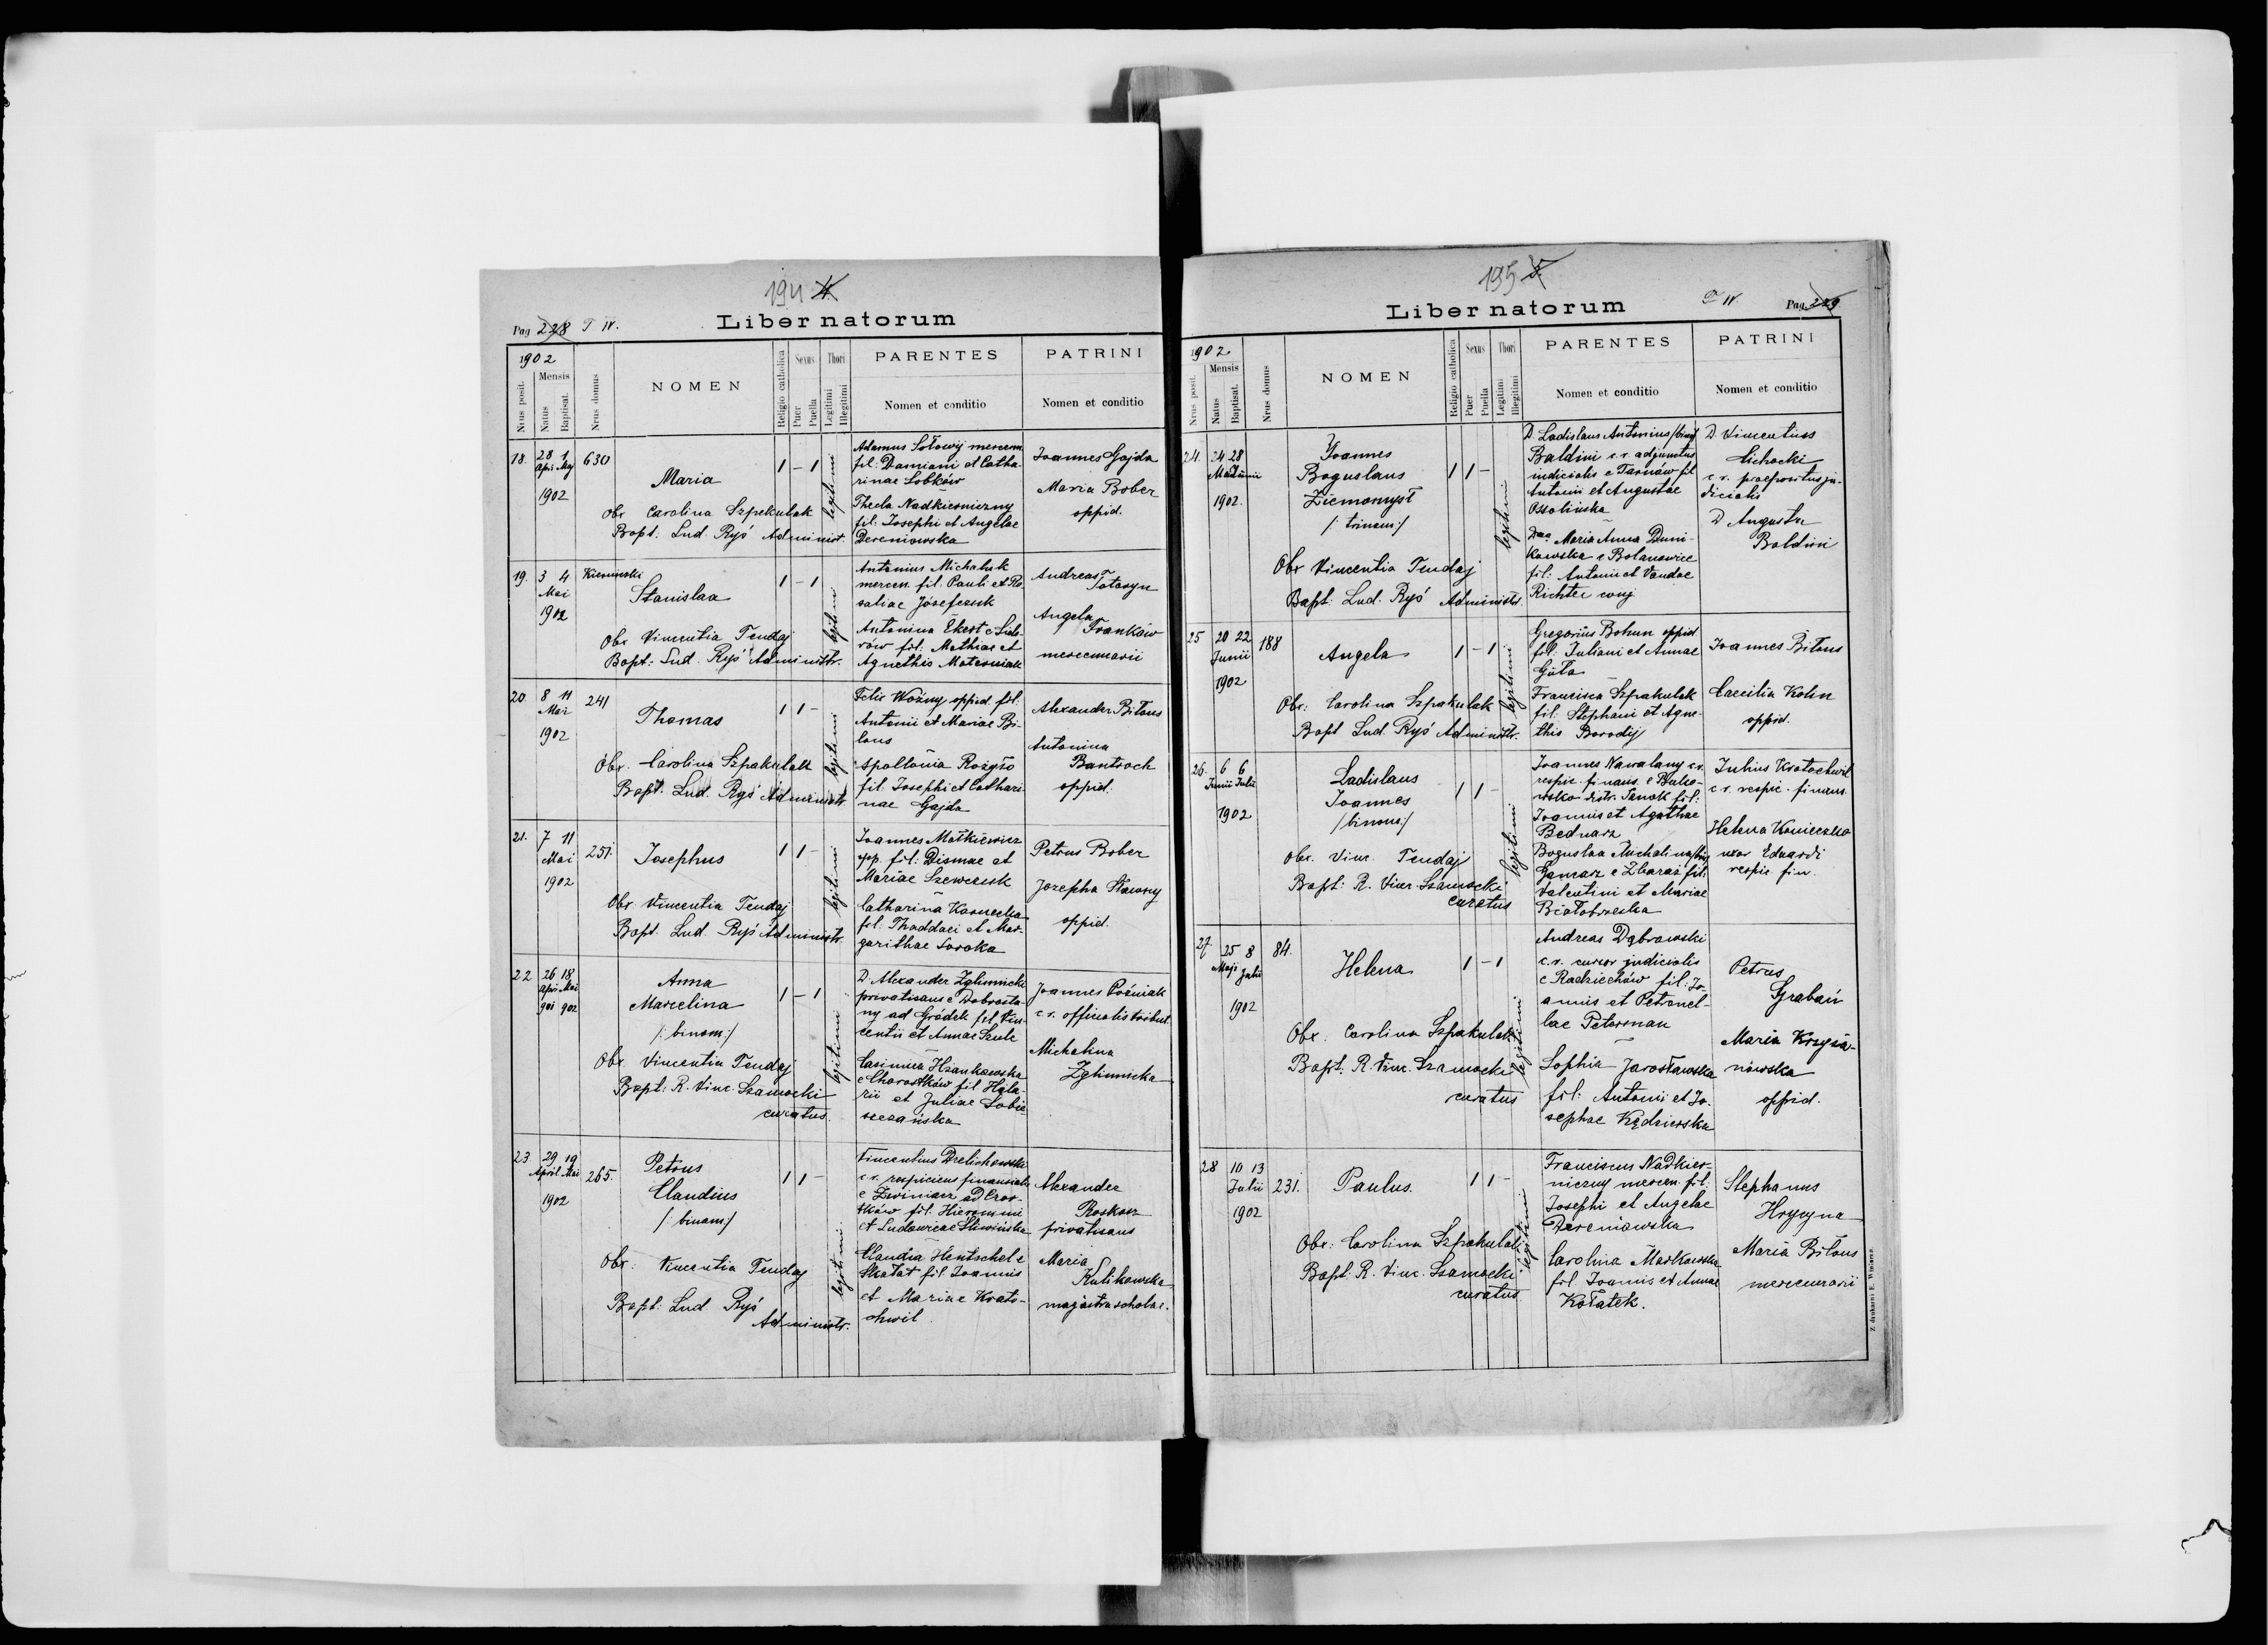 194
Pag 228 T IV.
Liber natorum
1902
Nrus posit.
Mensis
Natus
Baptisat.
Nrus domus
NOMEN
Religio catholica
Sexus
Puer
Puella
Thori
Legitimi
Illegitimi
PARENTES
Nomen et conditio
PATRINI
Nomen et conditio
18. 28 1 630
Apr. Maj
1902
Maria
1 – 1
legitimi
Obs. Carolina Szpakulak
Bapt: Lud. Ryś Administ.
Adamus Sołowij mercen.
fil: Damiani et Catha-
rinae Sobków
Thecla Nadkierniczny
fil: Josephi et Angelae
Dereniowska
Joannes Gajda
Maria Bober
oppid.
19. 3 4
Mai
1902
Stanislaa
1 – 1
legitimi
Obs. Vincentia Tendaj
Bapt: Lud. Ryś Administr.
Antonius Michaluk
mercen. fil. Pauli et Ro
saliae Józefczuk
Antonina Ekert e Sido-
rów fil: Mathiae et
Agnethis Materniak
Andreas Tataryn
Angela
Franków
mercenarii
20. 8 11 241
Mai
1902
Thomas
1 1 –
legitimi
Obs. Carolina Szpakulak
Bapt. Lud. Ryś Administr.
Felix Woźny oppid. fil.
Antonii et Mariae Bi-
lous
Apollonia Rozgło
fil. Josephi et Cathari
nae Gajda
Alexander Biłous
Antonina
Bantroch
oppid.
21. 7 11 251.
Mai
1902
Josephus
1 1 –
legitimi
Obs. Vincentia Tendaj
Bapt. Lud. Ryś Administr.
Joannes Matkiewicz
opp. fil: Dismae et
Mariae Szewczuk
Catharina Karnecka
fil. Thaddaei et Mar-
garithae Soroka
Petrus Bober
Josepha Sławny
oppid.
22 26 18
Apr. Mai
901 902
Anna
Marcelina
/: binom :/
1 – 1
legitimi
Obs. Vincentia Tendaj
Bapt: R. Vinc. Szamocki
curatus.
D. Alexander Zglinnicki
privatisans e Dobrosta-
ny ad Gródek fil. Vin-
centii et Annae Szulc
Casimira Hzankowska
e Chorostków fil Hila-
rii et Juliae Sobie
szczańska
Joannes Poźniak
c.r. officialis tribut.
Michalina
Zglinnicka
23 29 19 265.
April Mai
1902
Petrus
Claudius
/: binom :/
1 1 –
legitimi
Obs: Vincentia Tendaj
Bapt: Lud Ryś
Administr.
Vincentius Drelichowski
c.r. respiciens financialis
e Zwiniacz ad Czor-
tków fil: Hieronimi
et Ludovicae Śliwińska
Claudia Hentschel e
Skałat fil. Joannis
et Mariae Krato-
chwil
Alexander
Roskosz
privatisans
Maria
Kulikowska
magistra scholae.
195
Liber natorum
T IV. Pag. 229
1902
Nrus posit.
Mensis
Natus
Baptisat.
Nrus domus
NOMEN
Religio catholica
Sexus
Puer
Puella
Thori
Legitimi
Illegitimi
PARENTES
Nomen et conditio
PATRINI
Nomen et conditio
24. 24 28
1902.
Joannes
Boguslaus
Ziemomysł
/: trinom :/
1 1 –
legitimi
Obs Vincentia Tendaj
Bapt: Lud. Ryś Administr.
D. Ladislaus Antonius /binom/
Baldini c.r. adjunctus
iudicialis e Tarnów fil
Antonii et Augustae
Ossolinska
Dna Maria Anna Duni-
kowska e Bolanowice
fil: Antonii et Vandae
Richter conj
D. Vincentius
Cichocki
c.r. praepositus ju-
dicialis
D Augusta
Baldini
25 20 22 188
Junii
1902
Angela
1 – 1
legitimi
Obs: Carolina Szpakulak
Bapt Lud. Ryś Administr.
Gregorius Bohun oppid
fil: Juliani et Annae
Guła
Francisca Szpakulak
fil: Stephani et Agne-
this Borodij
Joannes Biłous
Caecilia Kohn
oppid.
26. 6 6
Junii Julii
1902
Ladislaus
Joannes
/binom:/
1 1 –
legitimi
Obs. Vinc. Tendaj
Bapt: R. Vinc. Szamocki
curatus
Joannes Nawalany c.r.
respic. finans. e Buko-
wsko distr. Sanok fil:
Joannis et Agathae
Bednarz
Boguslaa Michalina /bin/
Gamarz e Zbaraż fil:
Valentini et Mariae
Białobrzeska
Julius Kratochwil
c.r. respic. finans.
Helena Konieczko
uxor Eduardi
respic fin.
27. 25 8 84.
Maji Julii
1902
Helena
1 – 1
legitimi
Obs. Carolina Szpakulak
Bapt: R. Vinc. Szamocki
curatus
Andreas Dąbrowski
c.r. cursor judicialis
e Radziechów fil: Jo-
annis et Petronel-
lae Peterman
Sophia Jarosławska
fil: Antonii et Jo-
sephae Kędzierska
Petrus
Grabań
Maria Krzyża-
nowska
oppid.
28 10 13 231.
Julii
1902
Paulus.
1 1 –
legitimi
Obs: Carolina Szpakulak
Bapt: R. Vinc. Szamocki
curatus.
Franciscus Nadkier-
niczny mercen. fil:
Josephi et Angelae
Dereniowska
Carolina Markowska
fil. Joannis et Annae
Kołatek.
Stephanus
Hrycyna
Maria Biłous
mercenarii
Z drukarni E. Winiarza.